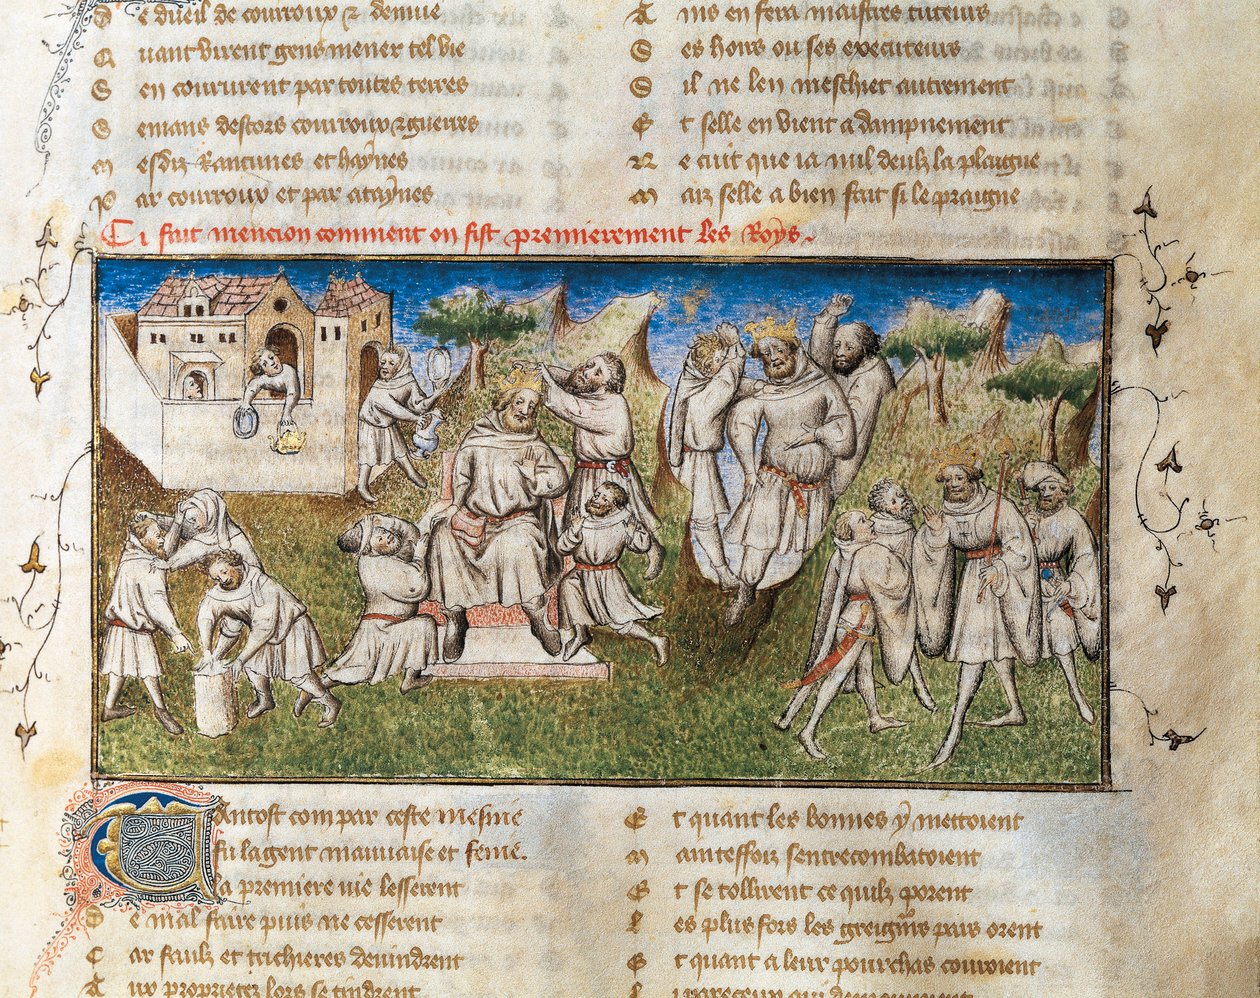 De dueil de courroux & denuie
Quant virent gens mener tel vie
Sen coururent par toutes terres
Semans destors couroux & guerres
Mesdiz Rancunes et haynes
Par couroux et par ataynes
Ains en fera maistres tuteurs
Ses hoirs ou ses executeurs
Sil ne len meschiet autrement
Et selle en vient a dampnement
Ne cuit que ia nul deulz la plaigne
Maiz selle a bien fait si le praigne
Ci fait mencion comment on fist premierement les Roys.
Tantost com par ceste mesnie
fu lagent mauuaise et fenie.
La premiere vie lesserent
De mal faire puis ne cesserent
Car faulz et trichieres deuindrent
Aux proprietez lors se tindrent
Et quant les bonnes y mettoient
Mainteffoiz sentrecombatoient
Et se tollirent ce quilz porent
Les plus fors les greigneurs pars orent
Et quant a leur pourchas couroient
Li pareceux qui demouroient